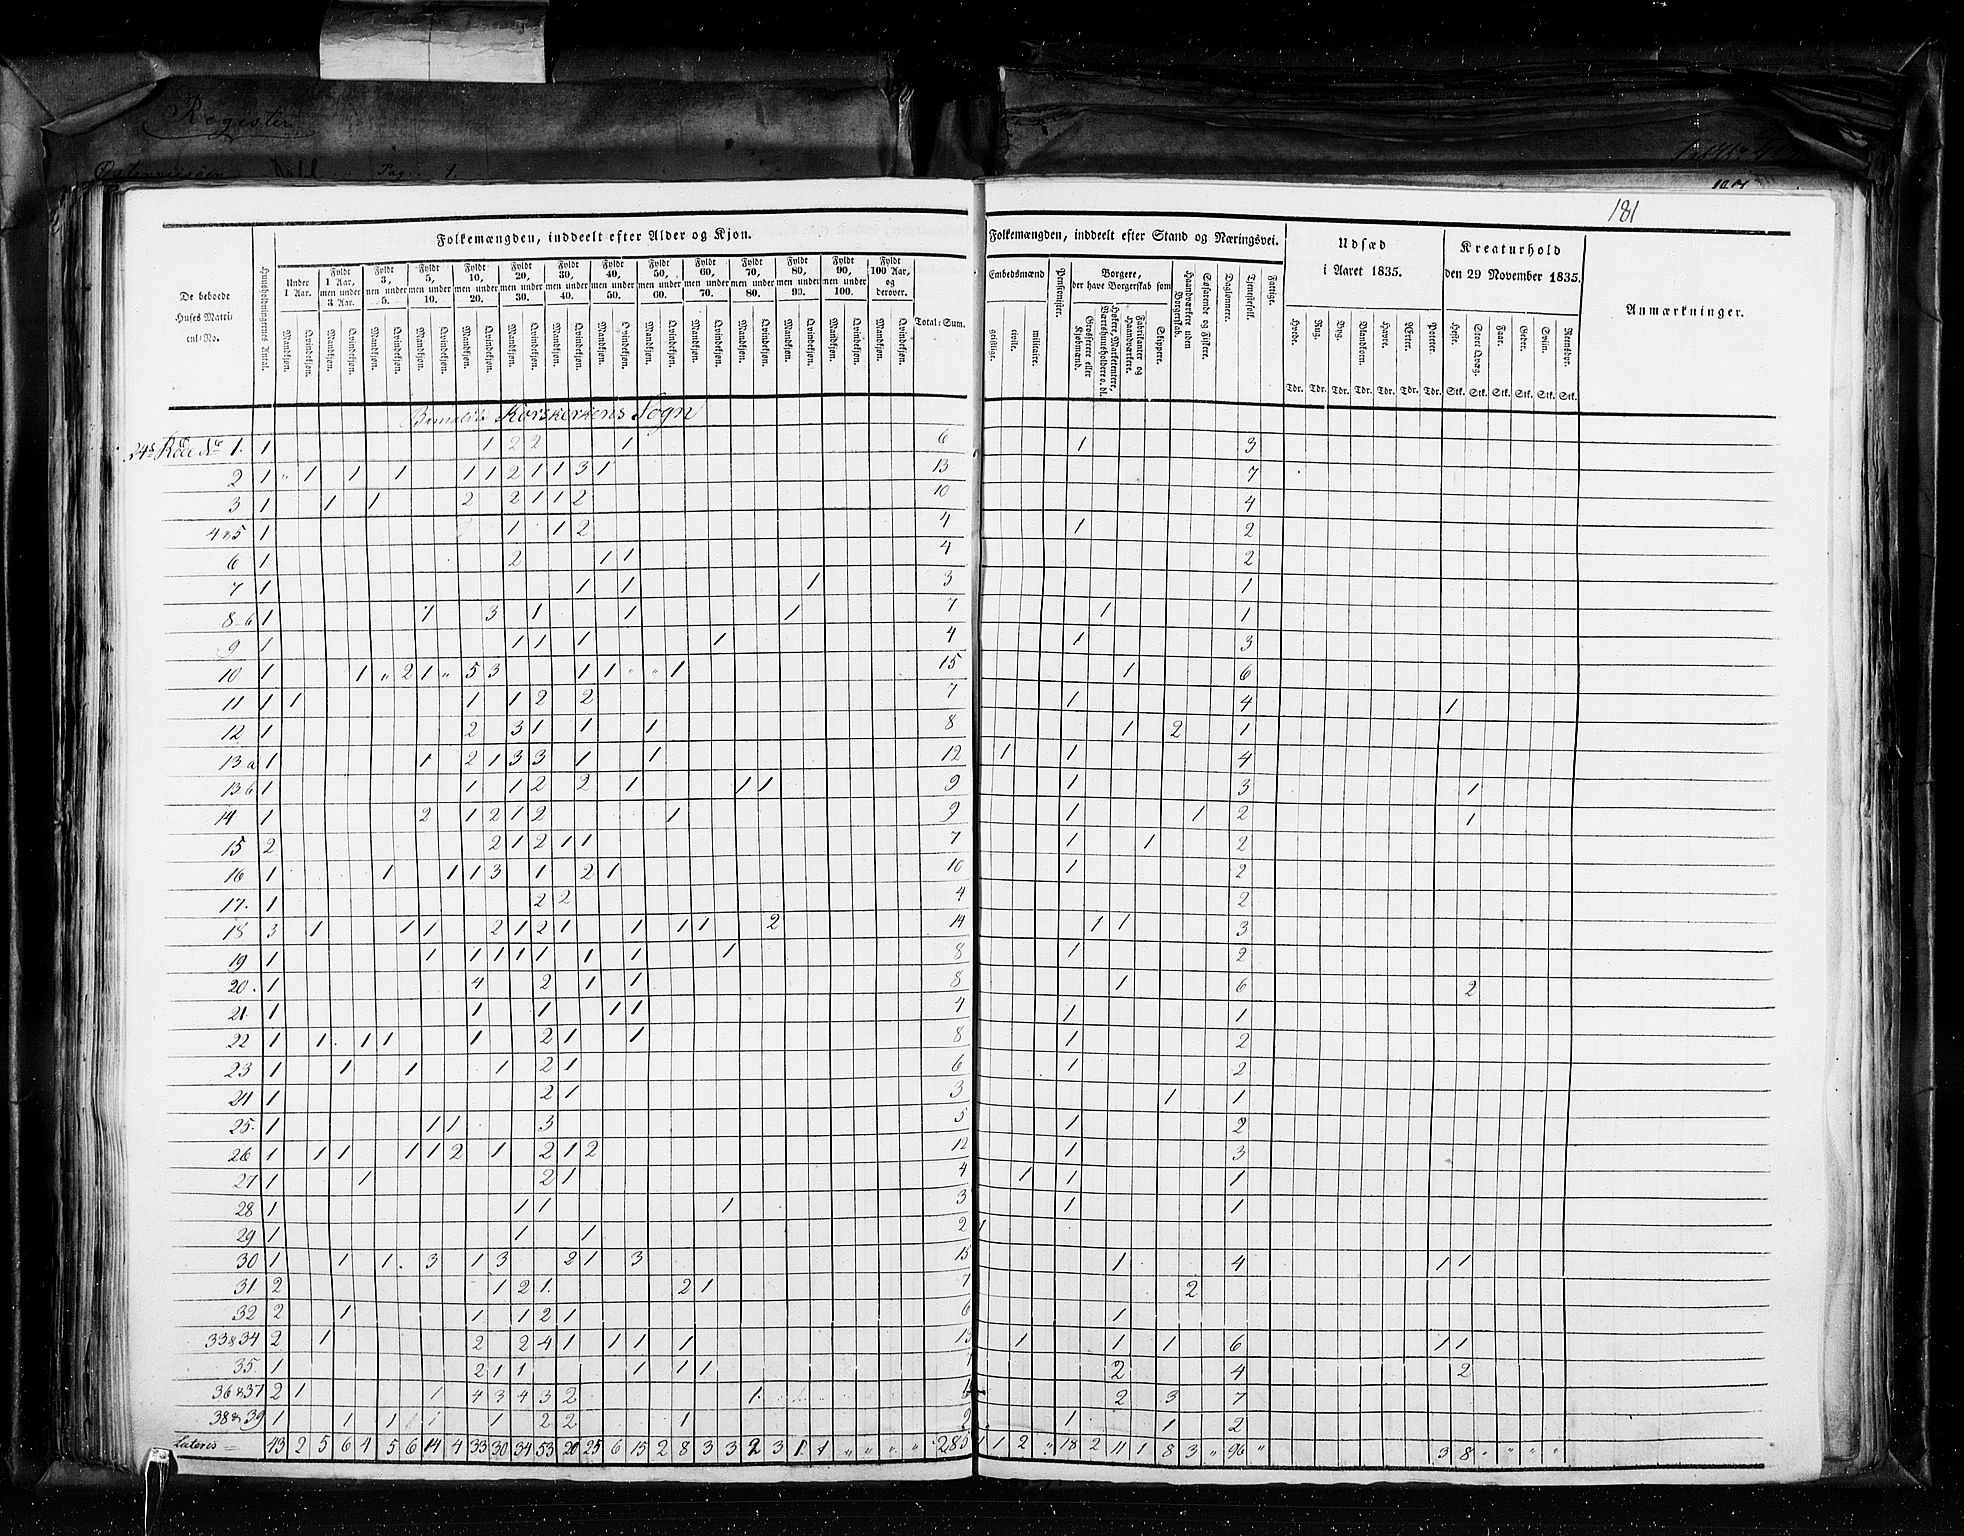 Register
Pag: 1.
181
Folkemængden, inddeelt efter Alder og Kjøn.
Folkemængden, inddeelt efter Stand og Næringsvei.
Udsæd i Aaret 1835.
Kreaturhold den 29 November 1835.
Anmærkninger.
De beboede Huses Matricul-No.
Huusholdningernes Antal.
Under 1 Aar.
Fyldt 1 Aar, men under 3 Aar.
Fyldt 3, men under 5.
Fyldt 5, men under 10.
Fyldt 10, men under 20.
Fyldt 20, men under 30.
Fyldt 30, men under 40.
Fyldt 40, men under 50.
Fyldt 50, men under 60.
Fyldt 60, men under 70.
Fyldt 70, men under 80.
Fyldt 80, men under 90.
Fyldt 90, men under 100.
Fyldt 100 Aar, og derover.
Total-Sum.
Mandkjøn. Qvindekjøn.
Embedsmænd
geistlige. civile. militaire.
Pensionister.
Borgere, der have Borgerskab som
Grosserere eller Kjøbmænd.
Høkere, Marketentere, Værtshuusholdere o. dl.
Fabrikanter og Haandværkere.
Skippere.
Haandværkere uden Borgerskab.
Søfarende og Fiskere.
Daglønnere.
Tjenestefolk.
Fattige.
Hvede. Rug. Byg. Blandkorn. Havre. Ærter. Poteter.
Tdr. Tdr. Tdr. Tdr. Tdr. Tdr. Tdr.
Heste. Stort Qvæg. Faar. Geder. Sviin. Rensdyr.
Stk. Stk. Stk. Stk. Stk. Stk.
Korskirkens Sogn
24de Rode No 1. 1 1 2 2 1 6 1 3
2 1 1 1 1 1 1 2 1 1 3 1 13 7
3 1 1 1 2 2 1 1 2 10 4
4 & 5 1 1 1 2 4 1 2
6 1 2 1 1 4 2
7 1 1 1 1 3 1
8 b 1 1 3 1 1 1 7 1 1
9 1 1 1 1 1 4 1 3
10 1 1 " 2 1 " 5 3 1 1 " " 1 15 1 6
11 1 1 1 1 2 2 7 1 4 1
12 1 2 3 1 1 1 8 1 2 1
13 a 1 1 2 1 3 3 1 1 12 1 1 4
13 b 1 1 1 2 2 1 1 1 9 1 3 1
14 1 2 1 2 1 2 1 9 1 1 2 1
15 2 2 1 2 1 1 7 1 1 2
16 1 1 1 1 3 1 2 1 10 1 2
17. 1 2 2 4 2
18 3 1 1 1 2 1 2 1 1 1 1 2 14 1 1 3
19 1 1 1 1 1 1 1 1 1 8 1 2
20. 1 4 2 1 1 8 1 6 2
21 1 1 1 1 1 4 1 1
22 1 1 1 1 1 2 1 1 8 1 2
23 1 1 1 1 2 1 6 1 2
24 1 2 1 3 1 1
25. 1 1 1 3 5 1 2
26 1 1 1 1 1 2 1 2 1 2 12 1 3
27 1 1 2 1 4 1 1 1
28 1 1 1 1 3 1 1
29 1 1 1 2 1
30 1 1 1 3 1 3 2 1 3 15 1 4 1 1
31 2 1 2 1 2 1 7 2
32 2 1 1 1 2 1 6 1
33 & 34 2 1 2 2 4 1 1 1 1 13 1 1 1 6 1 1
35. 1 2 1 1 1 1 1 7 2 4 2
36 & 37 2 1 1 4 3 4 3 2 1 2 3 7
38 & 39 1 1 1 1 1 2 2 1 9 1 1 2
Lateris = 43 2 5 6 4 5 6 14 4 33 30 34 53 20 25 6 15 2 8 3 3 2 3 1 1 " " " " 285 1 1 2 " 18 2 11 1 8 3 " 96 " 3 8 " " " "